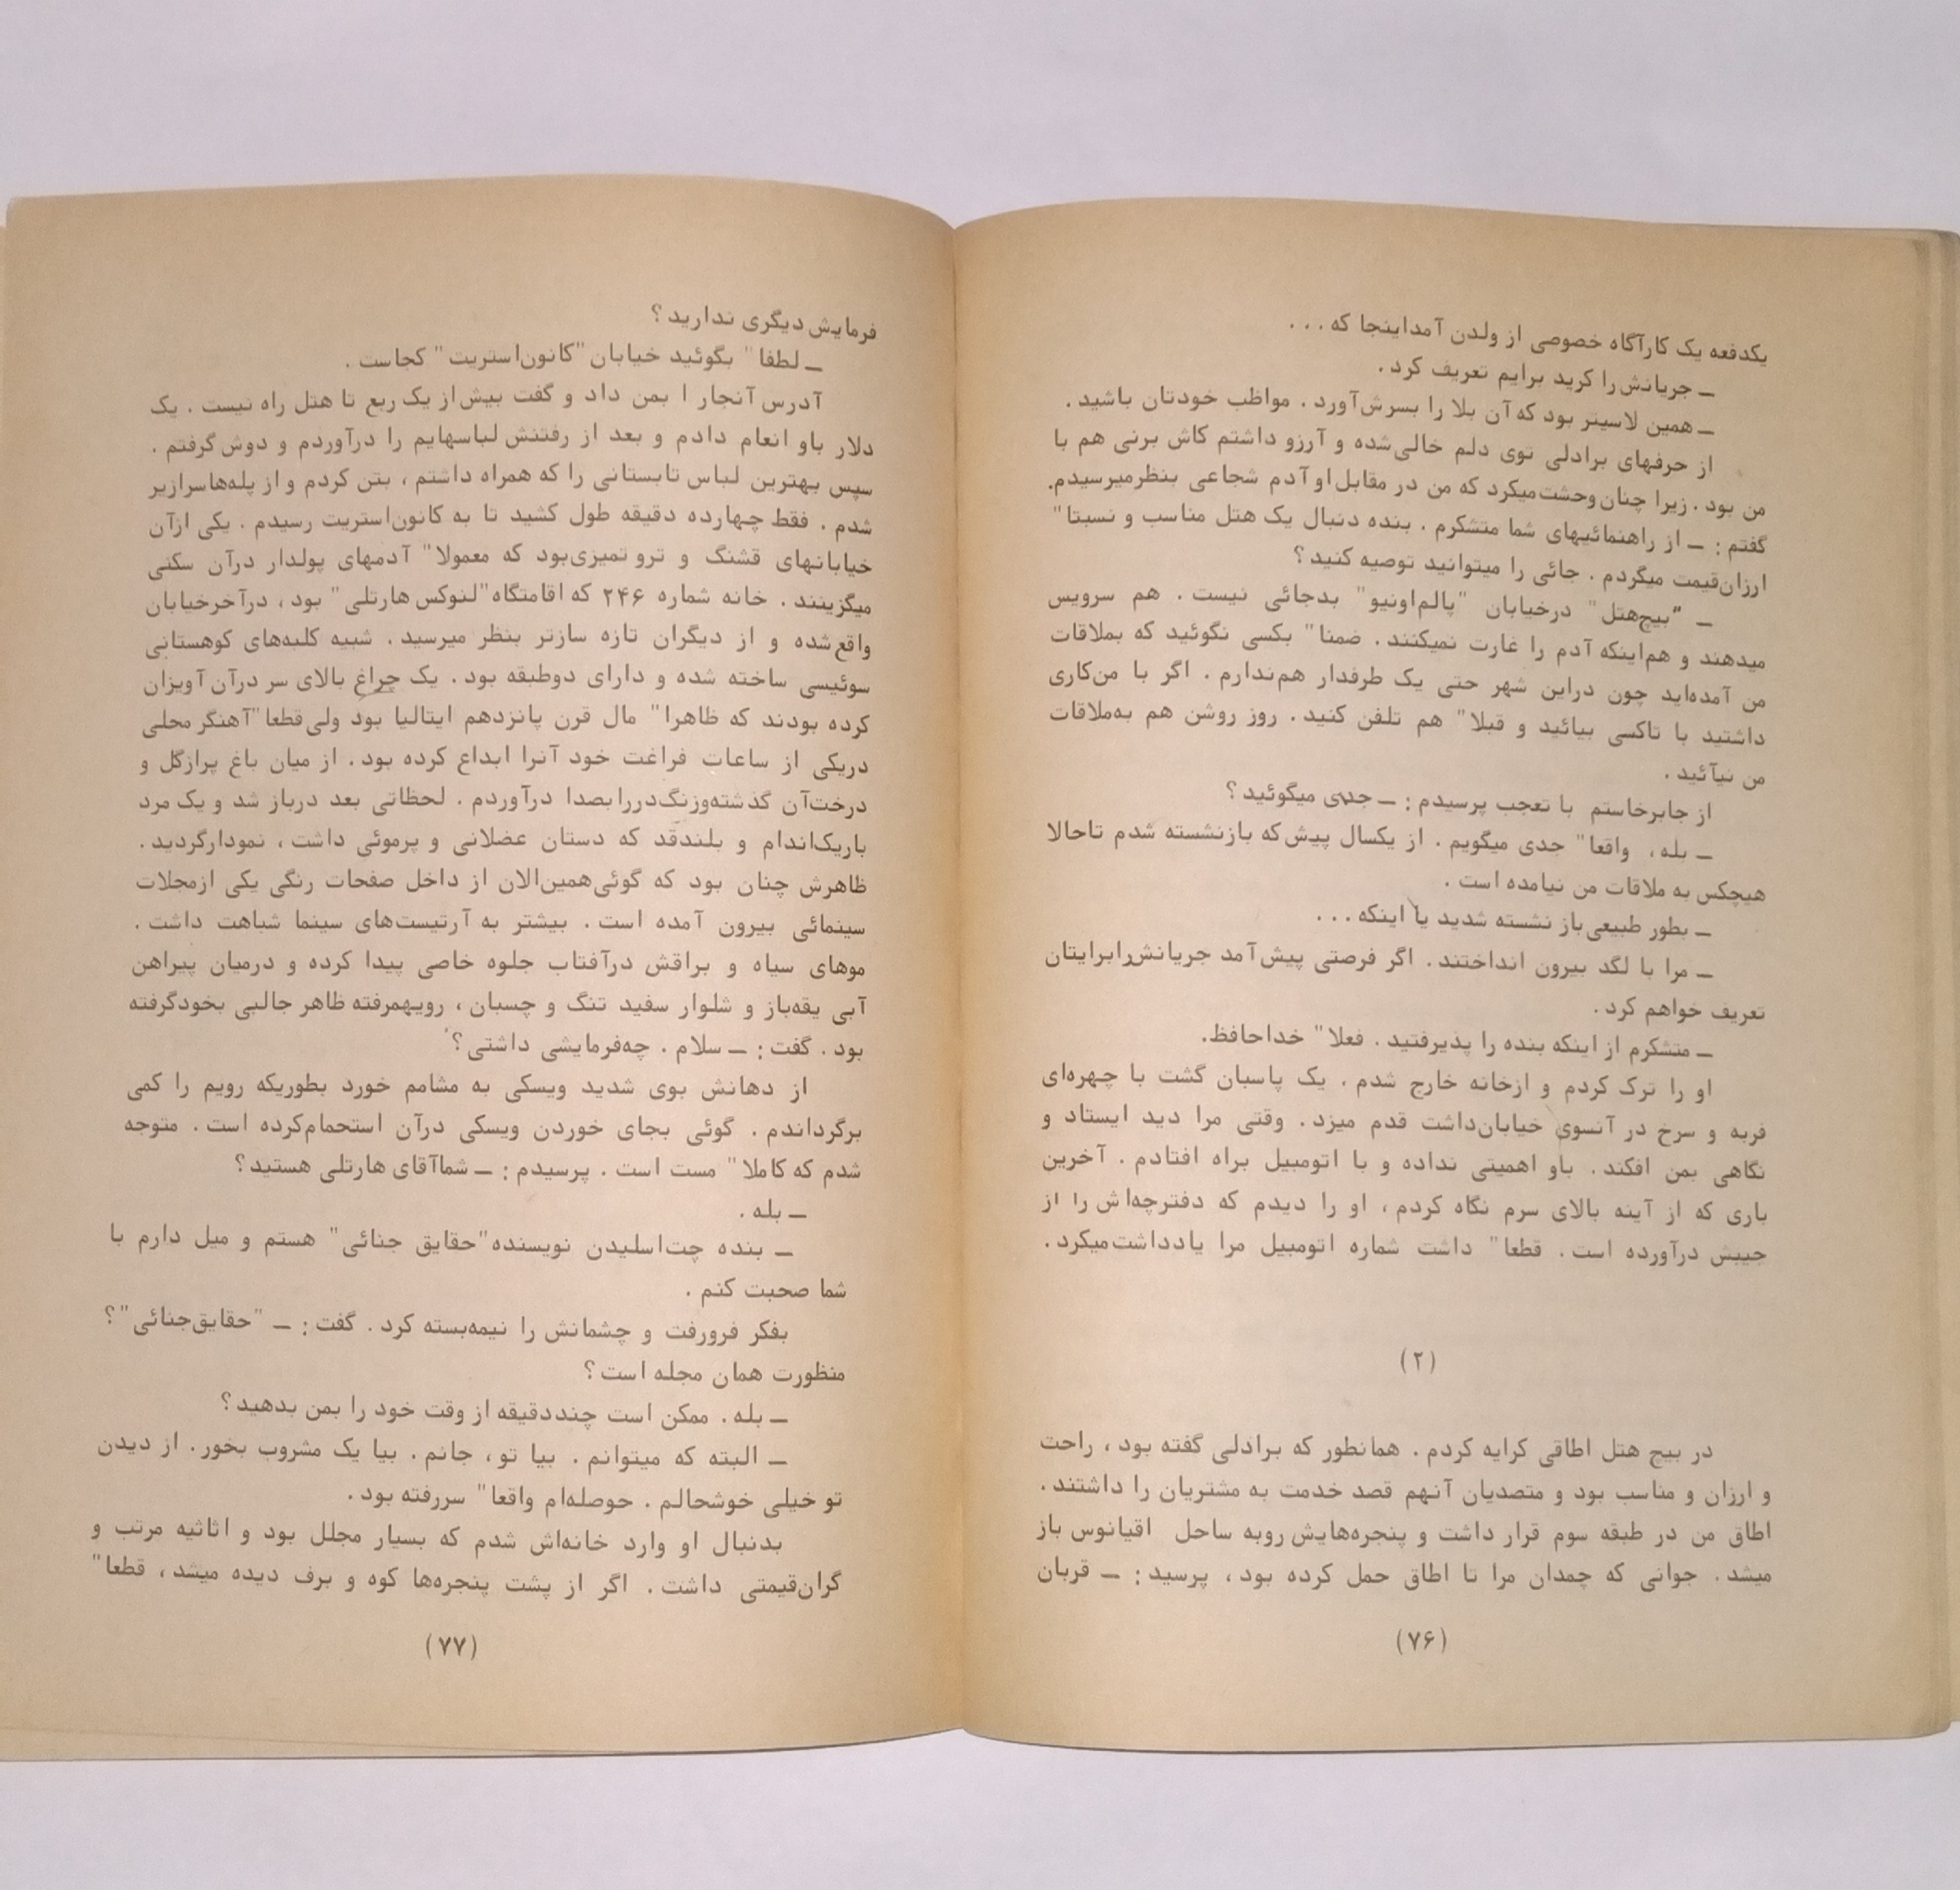 یکدفعه یک کارآگاه خصوصی از ولدن آمداینجا که ...
ــ جریانش را کرید برایم تعریف کرد .
ــ همین لاسیتر بود که آن بلا را بسرش آورد . مواظب خودتان باشید .
از حرفهای برادلی توی دلم خالی شده و آرزو داشتم کاش برنی هم با
من بود . زیرا چنان وحشت میکرد که من در مقابل او آدم شجاعی بنظر میرسیدم.
گفتم : ــ از راهنمائیهای شما متشکرم . بنده دنبال یک هتل مناسب و نسبتا"
ارزان قیمت میگردم . جائی را میتوانید توصیه کنید ؟
ــ "بیچ هتل" در خیابان "پالم اونیو" بدجائی نیست . هم سرویس
میدهند و هم اینکه آدم را غارت نمیکنند . ضمنا" بکسی نگوئید که بملاقات
من آمده اید چون دراین شهر حتی یک طرفدار هم ندارم . اگر با من کاری
داشتید با تاکسی بیائید و قبلا" هم تلفن کنید . روز روشن هم به ملاقات
من نیآئید .
از جابرخاستم با تعجب پرسیدم : ــ جدی میگوئید ؟
ــ بله ، واقعا" جدی میگویم . از یکسال پیش که بازنشسته شدم تاحالا
هیچکس به ملاقات من نیامده است .
ــ بطور طبیعی باز نشسته شدید یا اینکه ...
ــ مرا با لگد بیرون انداختند . اگر فرصتی پیش آمد جریانش را برایتان
تعریف خواهم کرد .
ــ متشکرم از اینکه بنده را پذیرفتید . فعلا" خداحافظ.
او را ترک کردم و ازخانه خارج شدم . یک پاسبان گشت با چهره ای
فربه و سرخ در آنسوی خیابان داشت قدم میزد . وقتی مرا دید ایستاد و
نگاهی بمن افکند . باو اهمیتی نداده و با اتومبیل براه افتادم . آخرین
باری که از آینه بالای سرم نگاه کردم ، او را دیدم که دفترچه اش را از
جیبش درآورده است . قطعا" داشت شماره اتومبیل مرا یادداشت میکرد .
(۲)
در بیچ هتل اطاقی کرایه کردم . همانطور که برادلی گفته بود ، راحت
و ارزان و مناسب بود و متصدیان آنهم قصد خدمت به مشتریان را داشتند .
اطاق من در طبقه سوم قرار داشت و پنجره هایش روبه ساحل اقیانوس باز
میشد . جوانی که چمدان مرا تا اطاق حمل کرده بود ، پرسید : ــ قربان
(۷۶)
فرمایش دیگری ندارید ؟
ــ لطفا" بگوئید خیابان "کانون استریت" کجاست .
آدرس آنجار ا بمن داد و گفت بیش از یک ربع تا هتل راه نیست . یک
دلار باو انعام دادم و بعد از رفتنش لباسهایم را درآوردم و دوش گرفتم .
سپس بهترین لباس تابستانی را که همراه داشتم ، بتن کردم و از پله هاسرازیر
شدم . فقط چهارده دقیقه طول کشید تا به کانون استریت رسیدم . یکی ازآن
خیابانهای قشنگ و ترو تمیزی بود که معمولا" آدمهای پولدار درآن سکنی
میگزینند . خانه شماره ۲۴۶ که اقامتگاه "لنوکس هارتلی" بود ، درآخرخیابان
واقع شده و از دیگران تازه سازتر بنظر میرسید . شبیه کلبه های کوهستانی
سوئیسی ساخته شده و دارای دوطبقه بود . یک چراغ بالای سر درآن آویزان
کرده بودند که ظاهرا" مال قرن پانزدهم ایتالیا بود ولی قطعا "آهنگر محلی
دریکی از ساعات فراغت خود آنرا ابداع کرده بود . از میان باغ پرازگل و
درخت آن گذشته وزنگ دررابصدا درآوردم . لحظاتی بعد درباز شد و یک مرد
باریک اندام و بلندقد که دستان عضلانی و پرموئی داشت ، نمودارگردید .
ظاهرش چنان بود که گوئی همین الان از داخل صفحات رنگی یکی ازمجلات
سینمائی بیرون آمده است . بیشتر به آرتیست های سینما شباهت داشت .
موهای سیاه و براقش درآفتاب جلوه خاصی پیدا کرده و درمیان پیراهن
آبی یقه باز و شلوار سفید تنگ و چسبان ، رویهمرفته ظاهر جالبی بخودگرفته
بود . گفت : ــ سلام . چه فرمایشی داشتی ؟
از دهانش بوی شدید ویسکی به مشامم خورد بطوریکه رویم را کمی
برگرداندم . گوئی بجای خوردن ویسکی درآن استحمام کرده است . متوجه
شدم که کاملا" مست است . پرسیدم : ــ شماآقای هارتلی هستید ؟
ــ بله .
ــ بنده چت اسلیدن نویسنده "حقایق جنائی" هستم و میل دارم با
شما صحبت کنم .
بفکر فرورفت و چشمانش را نیمه بسته کرد . گفت : ــ "حقایق جنائی"؟
منظورت همان مجله است ؟
ــ بله . ممکن است چنددقیقه از وقت خود را بمن بدهید ؟
ــ البته که میتوانم . بیا تو ، جانم . بیا یک مشروب بخور . از دیدن
تو خیلی خوشحالم . حوصله ام واقعا" سررفته بود .
بدنبال او وارد خانه اش شدم که بسیار مجلل بود و اثاثیه مرتب و
گران قیمتی داشت . اگر از پشت پنجره ها کوه و برف دیده میشد ، قطعا"
(۷۷)